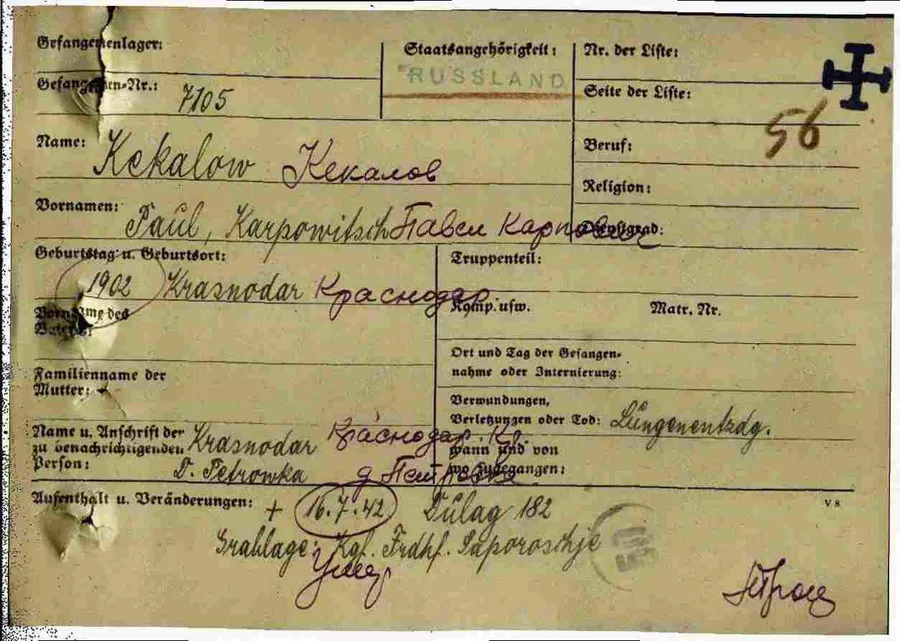 Gefangenenlager:
Staatsangehörigkeit:
RUSSLAND
Nr. der Liste:
Gefangenen-Nr.: 7105
Seite der Liste:
56
Name: Kekalow Кекалов
Beruf:
Religion:
Vornamen: Paul, Karpowitsch Павел Карпович
Dienstgrad:
Geburtstag u. Geburtsort:
1902 Krasnodar Краснодар
Truppenteil:
Komp. usw. Matr. Nr.
Vorname des
Vaters:
Ort und Tag der Gefangen-
nahme oder Internierung:
Familienname der
Mutter:
Verwundungen,
Verletzungen oder Tod: Lungenentzdg.
Name u. Anschrift der
zu benachrichtigenden
Person:
Krasnodar Краснодар. Кр.
D. Petrowka д Петровка
wann und von
wo zugegangen:
Aufenthalt u. Veränderungen: + 16.7.42 Dulag 182
V.8
Grablage: Kgf. Frdhf. Saporoschje
Умер